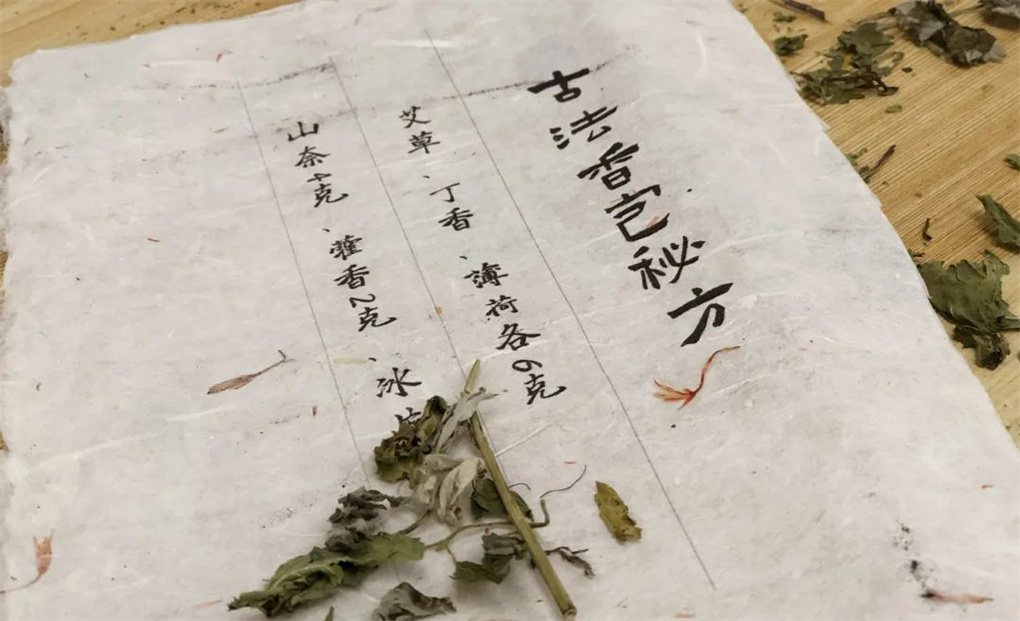 古法香包秘方
艾草、丁香、薄荷各6克
山奈4克、藿香2克、冰